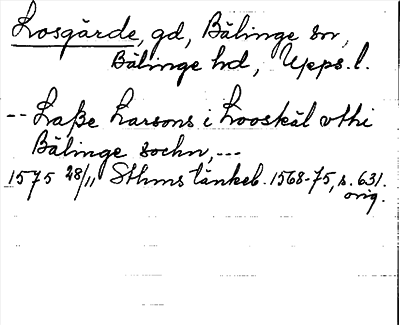 Losgärde, gd, Bälinge sn,
Bälinge hd, Upps. l.
-- Laße Larsons i Looskäl vthi
Bälinge sochn, ---
1575 28/11 Sthms tänkeb. 1568-75, s. 631.
orig.